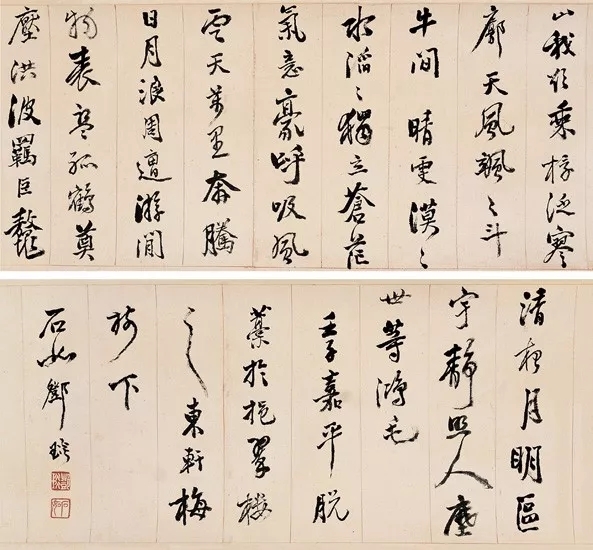 山我欲乘桴泛寒
廓天風颯〻斗
牛間晴雯漠〻
水滔〻獨立蒼茫
氣意豪呼吸風
雲天萬里奔騰
日月浪周遭游閒
物表孤鶴奠
壓洪波羈巨鼇
清夜月明區
宇靜照人塵
世等鴻毛
壬子嘉平脫
藁於挹翠樓
之東軒梅
樹下
石如鄧琰